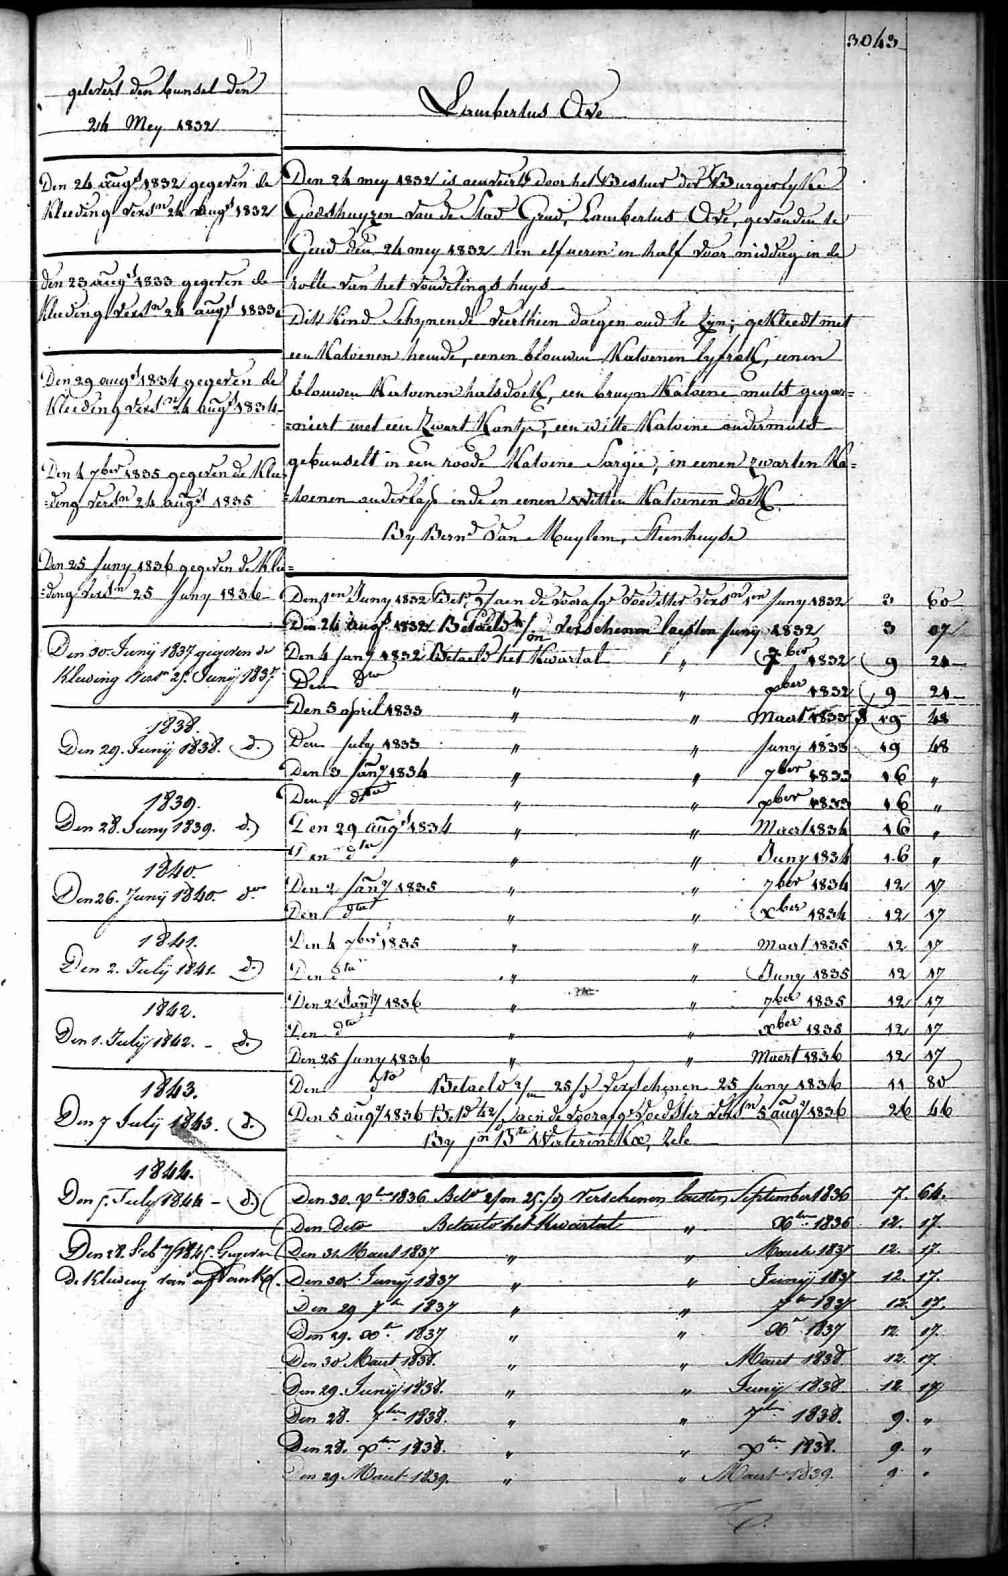 3043
gelevert den bunsel den
24 Mey 1832
Lambertus Ave
Den 24 augt 1832 gegeven de
Kleeding versn 24 augt 1832
den 23 augt 1833 gegeven de
Kleeding versn 24 augt 1833
Den 29 augt 1834 gegeven de
Kleeding versn 24 augt 1834
Den 4 7ber 1835 gegeven de Klee=
=ding versn 24 augt 1835
Den 25 Juny 1836 gegeven de Klee=
=ding versn 25 Juny 1836
Den 30. Junij 1837 gegeven de
Kleeding versn 25. Junij 1837.
1838.
Den 29. Junij 1838. d.
1839.
Den 28. Juny 1839. d.
1840.
Den 26. Junij 1840. do
1841.
Den 2. Julij 1841. d.
1842.
Den 1. Julij 1842. - d.
1843.
Den 7 Julij 1843. d.
1844.
Den 5. July 1844 - d.
Den 28. Feb 1845. Gegeven
de Kleeding van
Den 24 mey 1832 is aenveird door het Bestuer der Burgerlyke
Godshuyzen van de Stad Gend, Lambertus Ave, gevonden te
Gend den 24 mey 1832 ten elf ueren en half voor middag in de
rolle van het vondelings huys
Dits Kind Schynende veerthien daegen oud te zyn; gekleedt met
een Katoenen hemde, eenen blouwen Katoenen lyfrok, eenen
blouwen Kartoenen halsdoek, een bruyn Katoene muts gegar=
=niert met een zwart Kantje, een witte Katoene ondermuts
gebunselt in een roode Katoene Sargie, in eenen zwarten Ka=
=toenen onderlap ende in eenen witten Katoenen doek.
By Bernd Van Muylem, Steenhuyse
Den 1en Juny 1832 Bet. aen de voorafge voedster versn 1en Juny 1832 3 60
Den 24 augt 1832 Betaeld verschenen laesten Juny 1832 3 07
Den 4 Jany 1832 Betaeld het Kwartal " 7ber 1832 9 24
Den dto " " xber 1832 9 24
Den 5 april 1833 " " Maert 1833 19 48
Den July 1833 " " Juny 1833 19 48
Den 3 Jany 1834 " " 7ber 1833 16 "
Den dto " " xber 1833 16 "
Den 29 augt 1834 " " Maert 1834 16 "
Den dto " " Juny 1834 16 "
Den 2 Jany 1835 " " 7ber 1834 12 17
Den dto " " xber 1834 12 17
Den 4 7ber 1835 " " Maert 1835 12 17
Den dto " " Juny 1835 12 17
Den 2 Jany 1836 " " 7ber 1835 12 17
Den dto " " xber 1835 12 17
Den 25 Juny 1836 " " Maert 1836 12 17
Den dto Betaeld 2/m 25/d verschenen 25 Juny 1836 11 80
Den 5 augt 1836 Bet. aen de voorafge voedster versn 5 augt 1836 26 46
By Zele
Den 30. 7ber 1836 Betd 2/m 25/d verschenen laesten September 1836 7. 64.
Den Dito Betaeld het Kwartal " Xber 1836 12. 17.
Den 31 Maert 1837 " " Maert 1837 12. 17.
Den 30 Junij 1837 " " Junij 1837 12. 17.
Den 29 7ber 1837 " " 7ber 1837 12. 17.
Den 29. Xber 1837 " " Xber 1837 12 17.
Den 30 Maert 1838. " " Maert 1838 12. 17.
Den 29. Junij 1838. " " Junij 1838 12 17
Den 28. 7ber 1838. " " 7ber 1838. 9. "
Den 28. xber 1838. " " xber 1838. 9. "
Den 29 Maert 1839. " " Maert 1839. 9 "